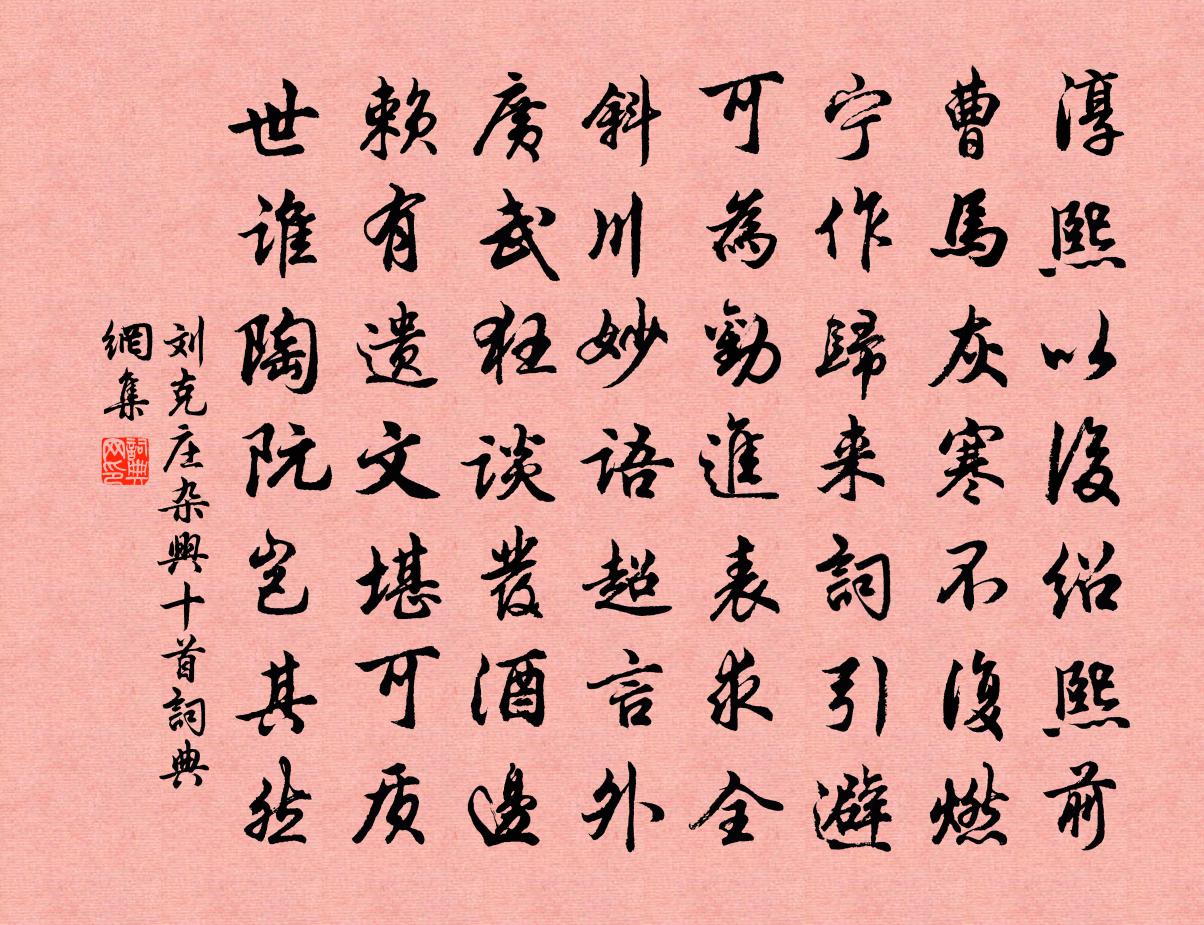 淳熙以後紹熙前
曹馬灰寒不復燃
宁作歸来詞引避
可為勸進表求全
斜川妙語超言外
廣武狂談發酒邊
賴有遗文堪可质
世谁陶阮岂其然
刘克庄杂興十首詞典
網集
詞典网印